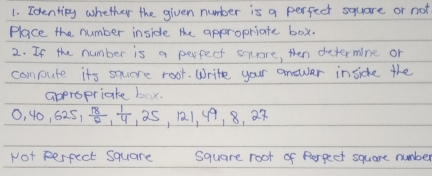 1. Identify whether the given number is a perfect square or not
Place the number inside the appropriate box.
2. If the number is a perfect square, then determine or
compute its square root. Write your answer inside the
appropriate box.
0, 40, 625, 18/2, 1/4, 25, 121, 49, 8, 27
Not Perfect Square Square root of Perfect square number